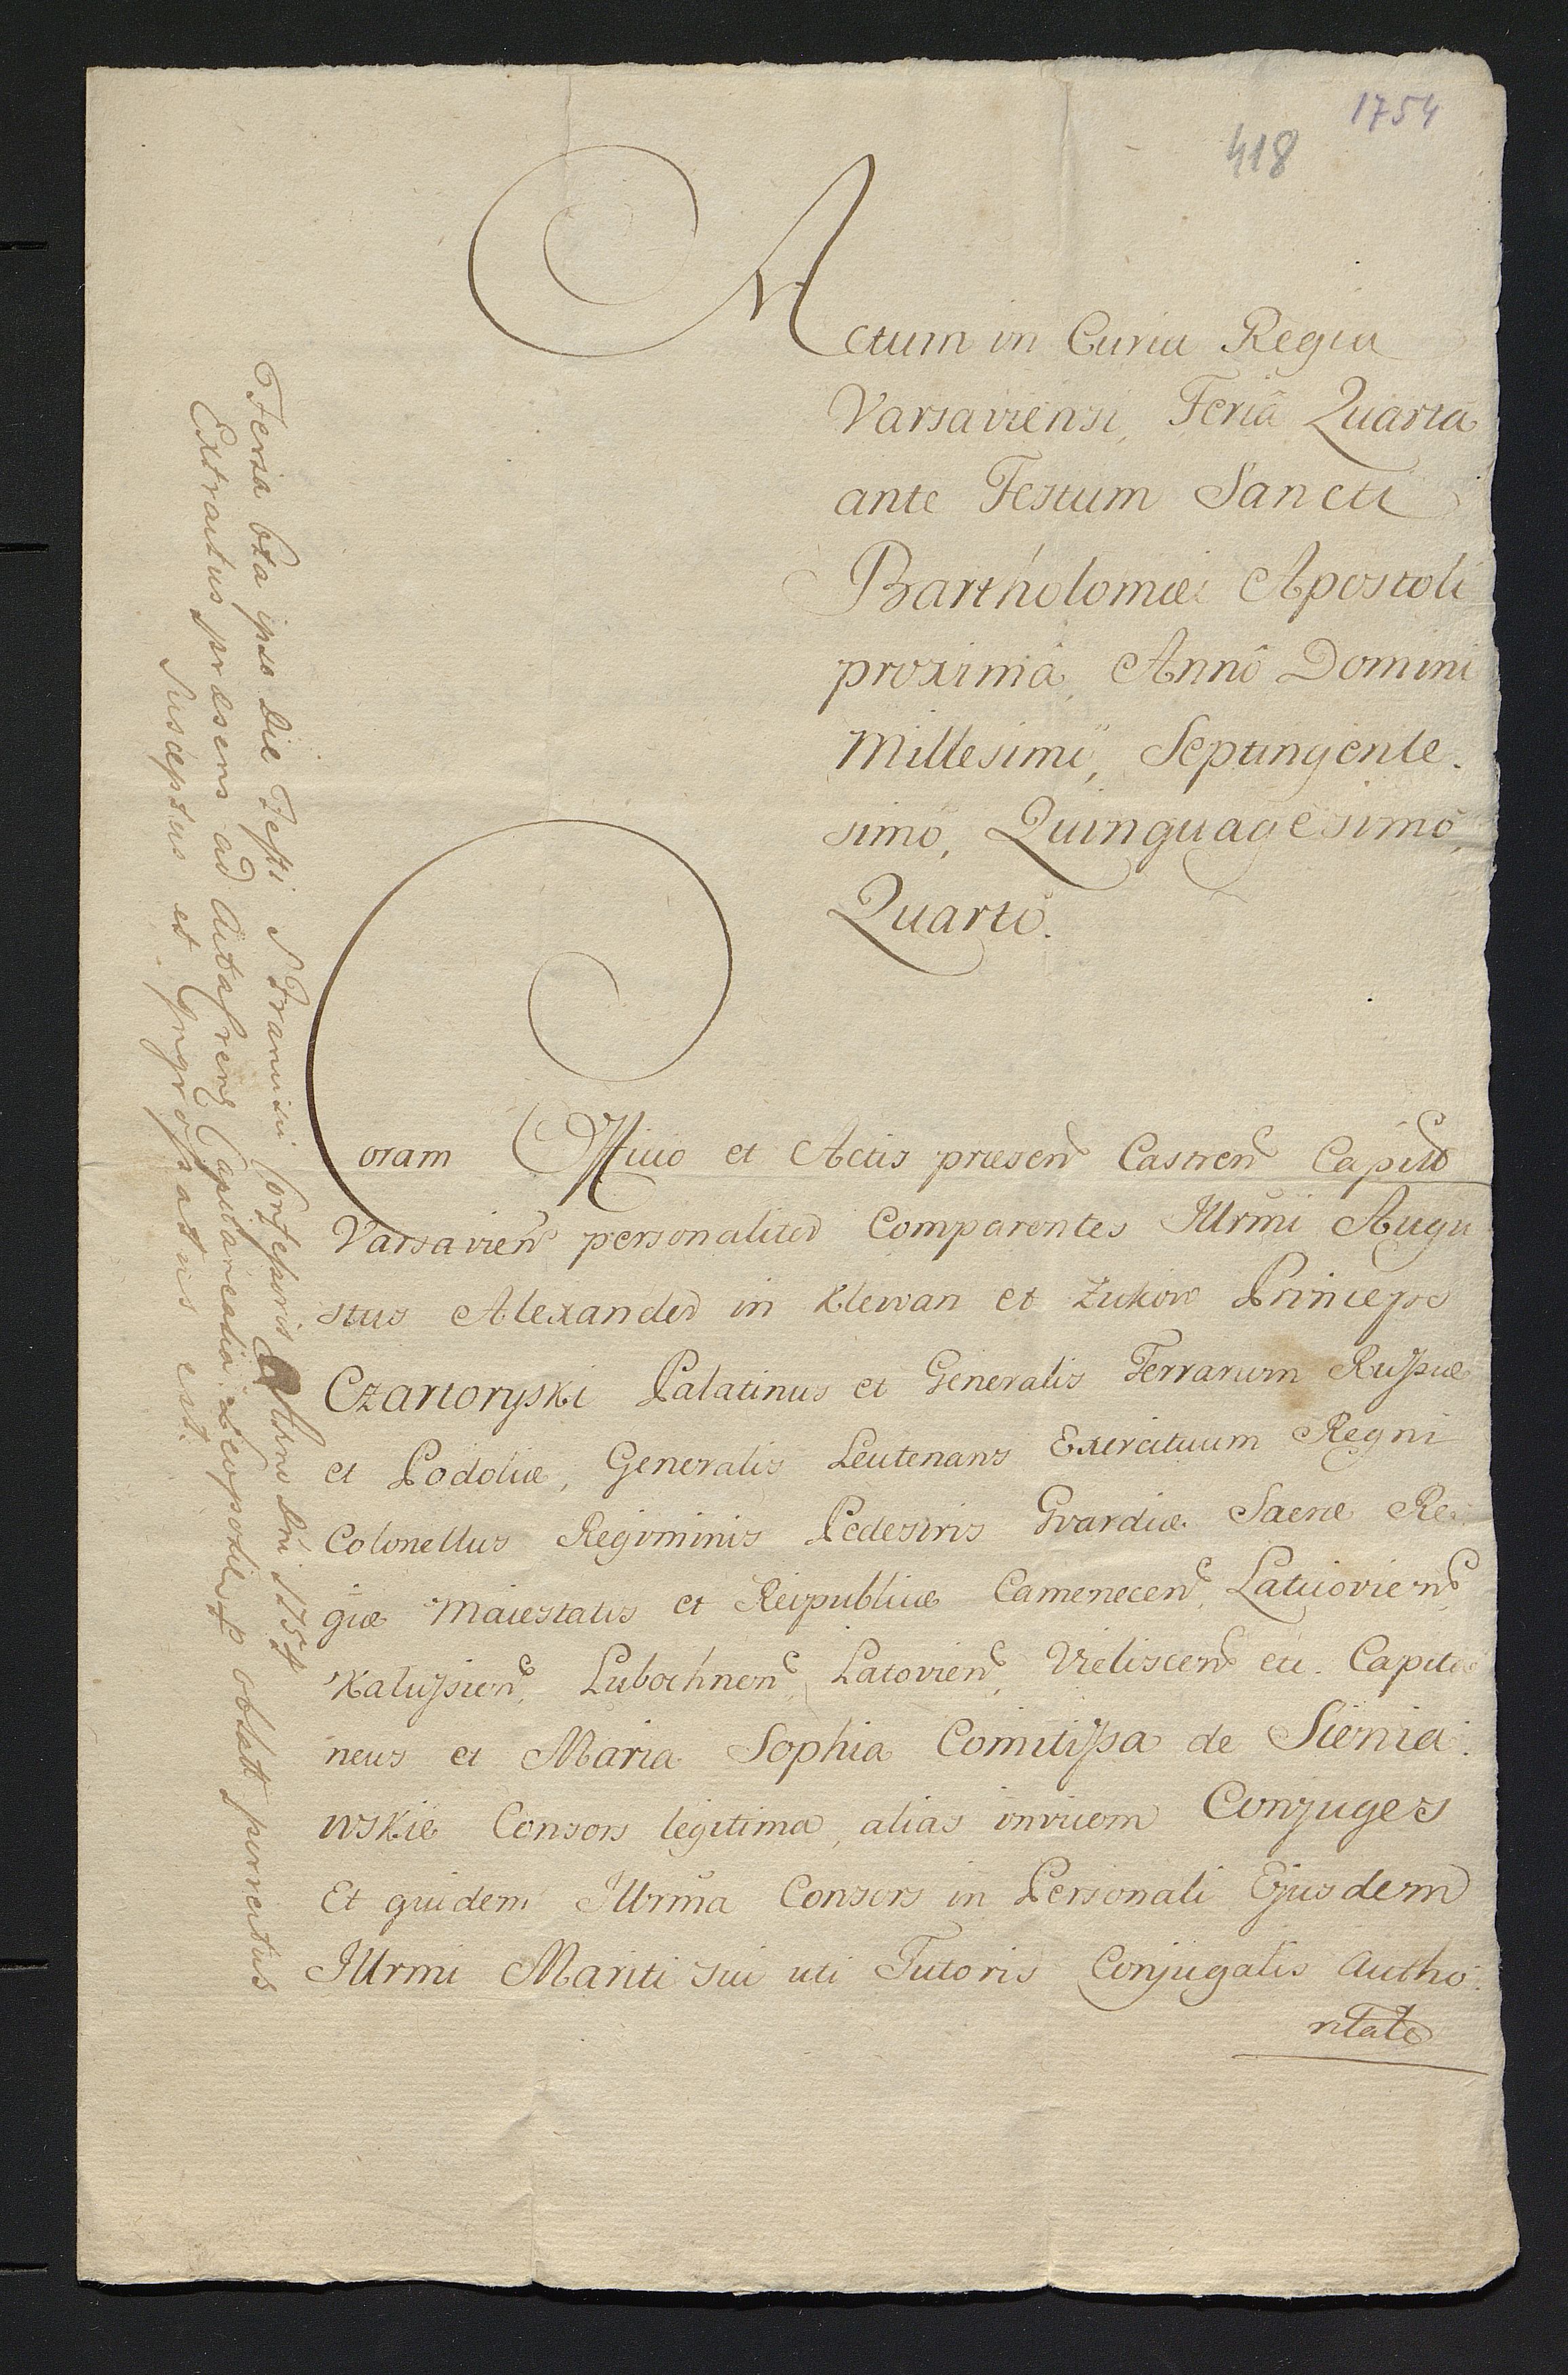 1754
418
Actum in Curia Regia
Varsaviensi, Feriâ Quarta
ante Festum Sancti
Bartholomæi Apostoli
proximâ, Annô Domini
Millesimô, Septingente-
simô, Quinquagesimô,
Quartô.
Coram Officio et Actis præsen Castren Capit
Varsavien personaliter Comparentes Illrmi Augu
stus Alexander in Klewan et Zukow Princeps
Czartoryski Palatinus et Generalis Terrarum Russiæ
et Podoliæ, Generalis Leutenans Exercituum Regni
Colonellus Regiminis Pedestris Gvardiæ Sacræ Re
giæ Maiestatis et Reipublicæ Camenecen, Laticovien
Kalussien, Lubochnen, Latovien, Vieliscen etc. Capita
neus et Maria Sophia Comitissa de Sienia-
wskie Consors legitima, alias invicem Conjuges
Et quidem Illrma Consors in Personali Ejusdem
Illrmi Mariti sui uti Tutoris Conjugalis autho-
ritate
Feria 6ta ipso die Festi S Francisci Confessoris Anno Dni 1754
Extractus præsens ad Acta Capitanealia Leopolien oblatt porrectus
Susceptus et Ingrossatus est.